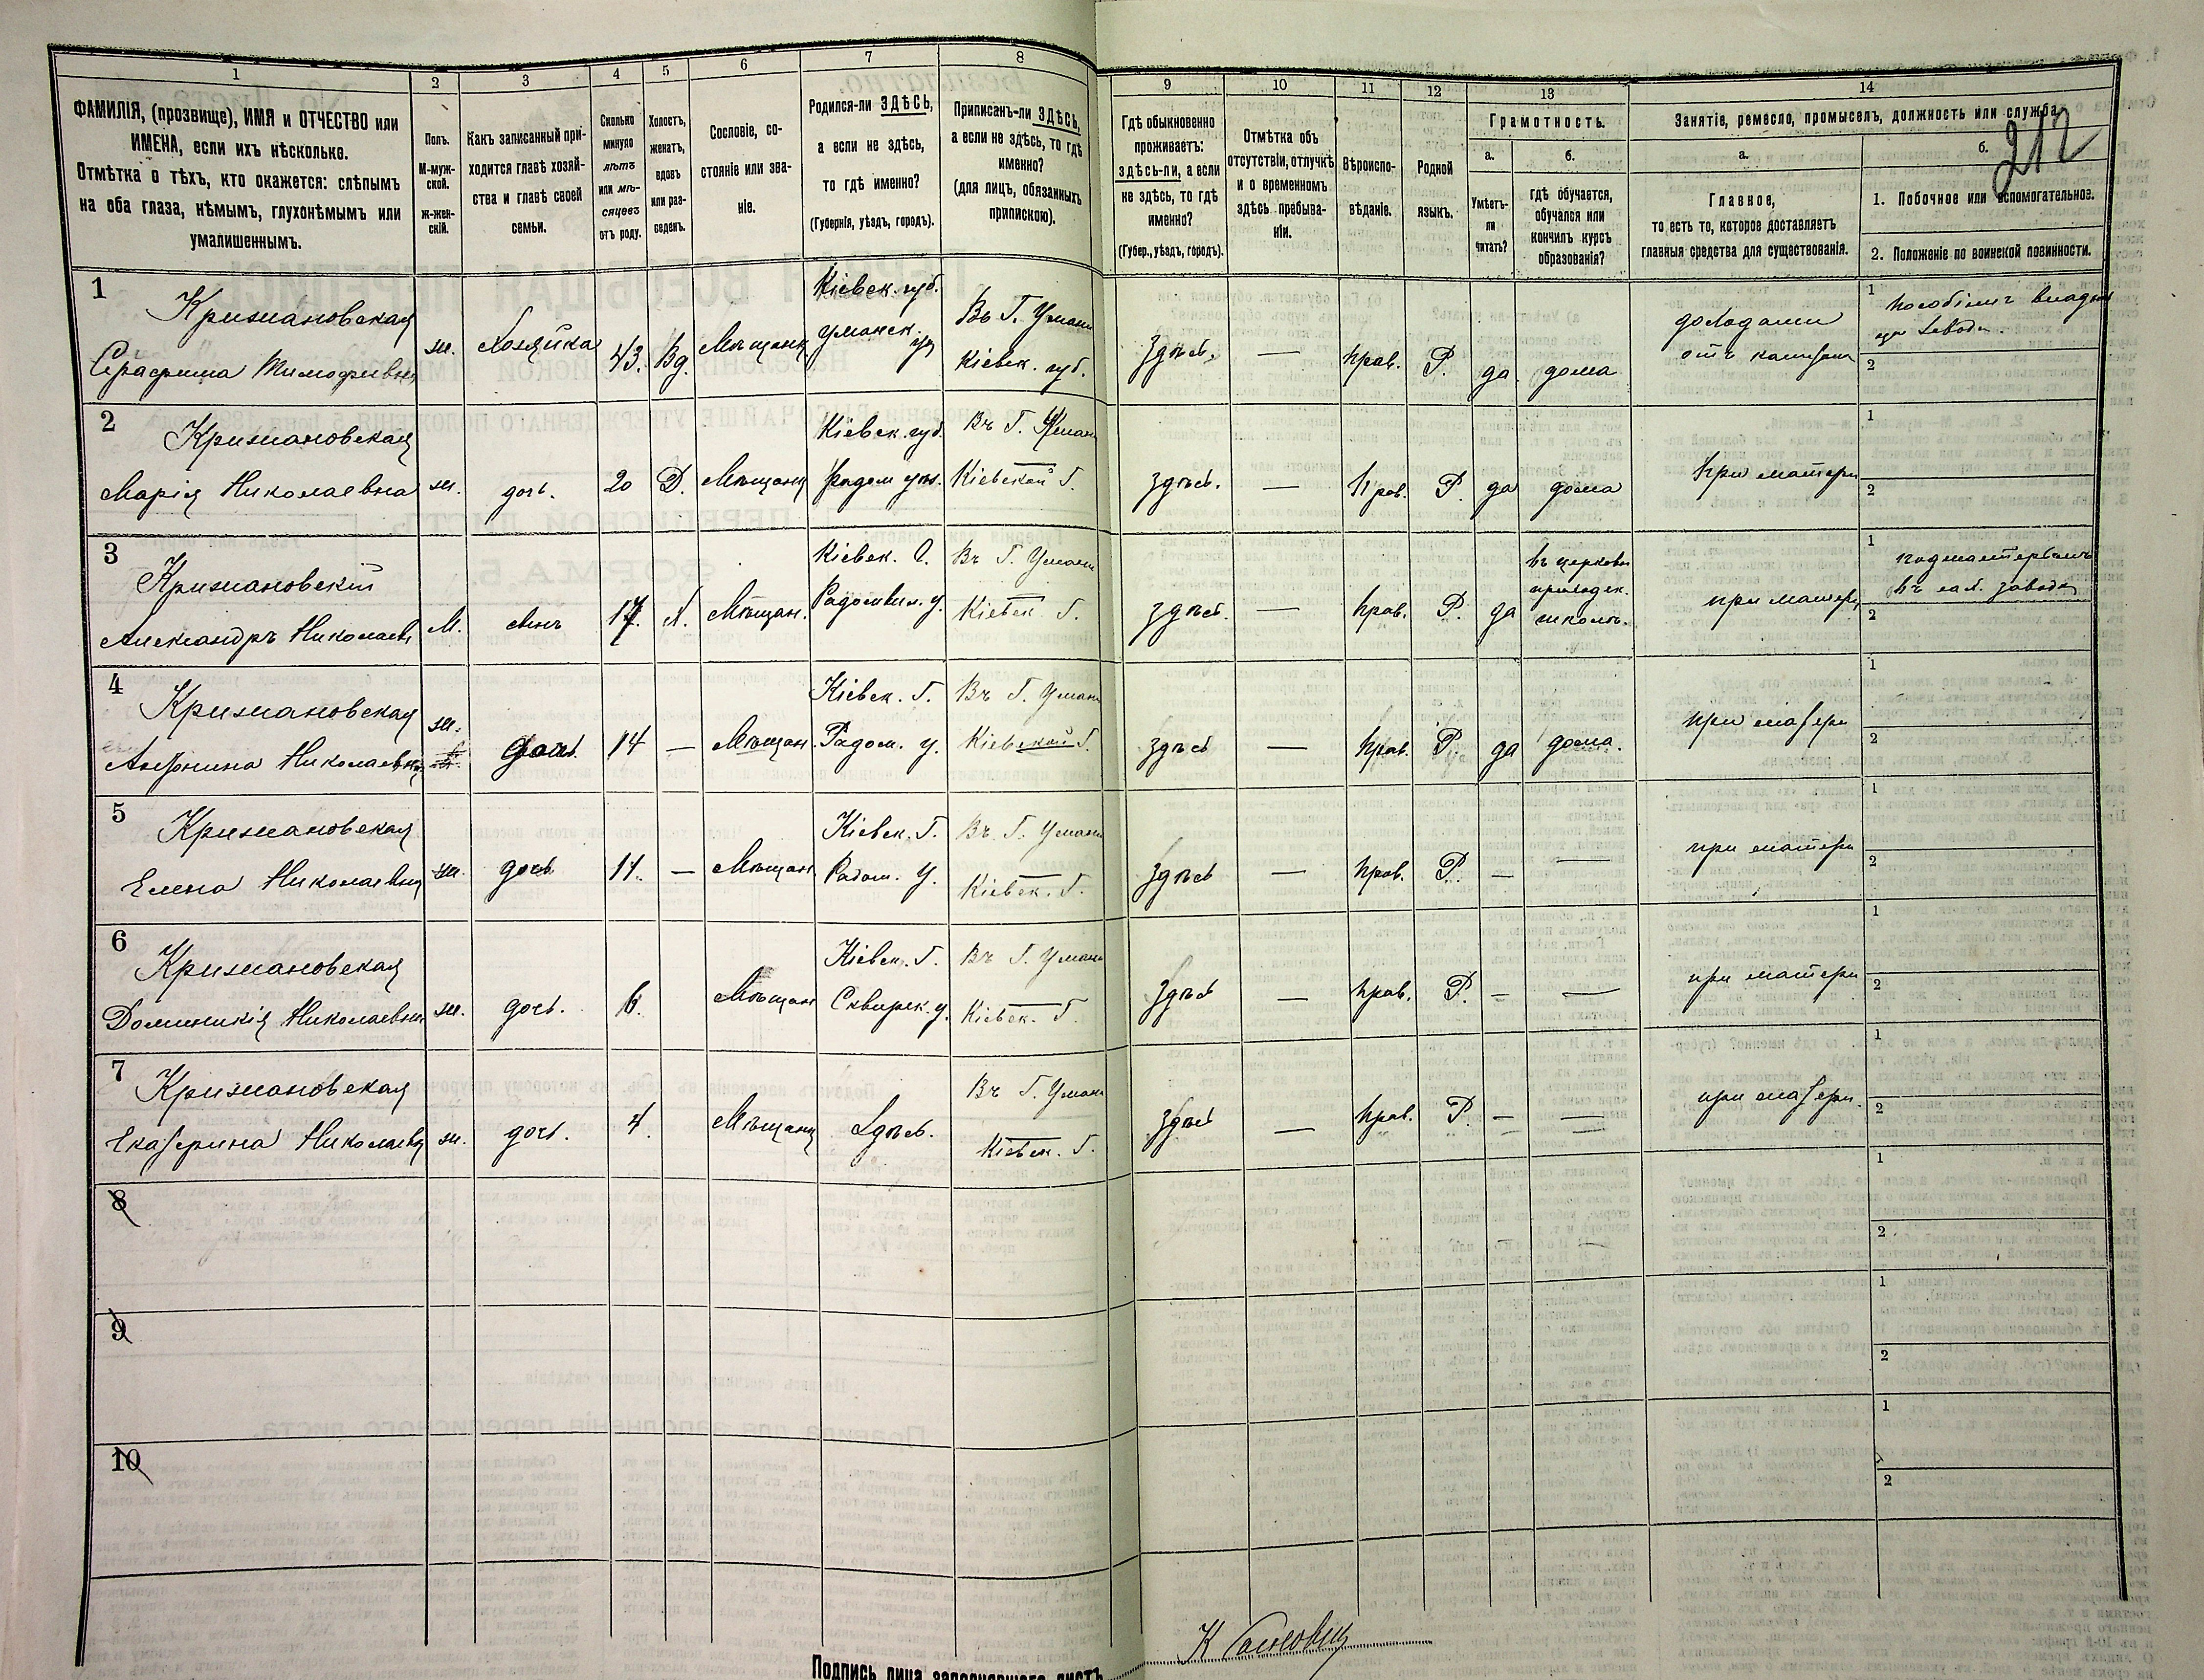 1 2 3 4 5 6 7 8 9 10 11 12 13 14
ФАМИЛІЯ, (прозвище), ИМЯ и ОТЧЕСТВО или
ИМЕНА, если ихъ нѣсколько.
Отмѣтка о тѣхъ, кто окажется: слѣпымъ
на оба глаза, нѣмымъ, глухонѣмымъ или
умалишеннымъ.
Полъ.
М-муж-
ской.
ж-жен-
скій.
Какъ записанный при-
ходится главѣ хозяй-
ства и главѣ своей
семьи.
Сколько
минуло
лѣтъ
или мѣ-
сяцевъ
отъ роду.
Холостъ,
женатъ,
вдовъ
или раз-
веденъ.
Сословіе, со-
стояніе или зва-
ніе.
Родился-ли ЗДѢСЬ,
а если не здѣсь,
то гдѣ именно?
(Губернія, уѣздъ, городъ).
Приписанъ-ли ЗДѢСЬ,
а если не здѣсь, то гдѣ
именно?
(для лицъ, обязанныхъ
припискою).
Гдѣ обыкновенно
проживаетъ:
здѣсь-ли, а если
не здѣсь, то гдѣ
именно?
(Губер., уѣздъ, городъ).
Отмѣтка объ
отсутствіи, отлучкѣ
и о временномъ
здѣсь пребыва-
ніи.
Вѣроиспо-
вѣданіе.
Родной
языкъ.
Грамотность.
а.
Умѣетъ-
ли
читать?
б.
гдѣ обучается,
обучался или
кончилъ курсъ
образованія?
Занятіе, ремесло, промыселъ, должность или служба.
а.
Главное,
то есть то, которое доставляетъ
главныя средства для существованія.
б.
212
1. Побочное или вспомогательное.
2. Положеніе по воинской повинности.
1
Крижановская
Серафима Тимофеевна
ж.
Хозяйка
43.
Вд.
Мѣщанка
Кіевск. губ.
Уманск. у.
Въ Г. Умани
Кіевск. губ.
здѣсь.
—
Прав.
Р.
да.
дома
доходами
отъ
1
2
2
Крижановская
Марія Николаевна
ж.
дочь.
20
Д.
Мѣщанк
Кіевск. губ.
Радом уѣз.
Въ Г. Умани
Кіевской Г.
здѣсь.
—
Прав.
Р.
да
дома
При матери
1
2
3
Крижановскій
Александръ Николаевъ
М.
Сынъ
17.
Х.
Мѣщан.
Кіевск. Г.
Радомысл. у.
Въ Г. Умани
Кіевск. Г.
здѣсь.
—
Прав.
Р.
да
въ церковн
приходск.
школѣ.
при матери
1
подмастерьемъ
въ сах. заводѣ
2
4
Крижановская
Антонина Николаевна
ж.
дочь.
14
—
Мѣщан.
Кіевск. Г.
Радом. у.
Въ Г. Умани
Кіевской Г.
здѣсь
—
Прав.
Р.
да
дома.
при матери
1
2
5
Крижановская
Елена Николаевна
ж.
дочь
11.
—
Мѣщан
Кіевск. Г.
Радом. У.
Въ Г. Умани
Кіевск. Г.
здѣсь
—
Прав.
Р.
—
—
при матери
1
2
6
Крижановская
Доминикія Николаевна
ж.
дочь.
6.
Мѣщан
Кіевск. Г.
Сквирск. у.
Въ Г. Умани
Кіевск. Г.
здѣсь
—
Прав.
Р.
—
—
при матери
1
2
7
Крижановская
Екатерина Николаевна
ж.
дочь.
4.
Мѣщанк
Здѣсь.
Въ Г. Умани
Кіевск. Г.
здѣсь
—
Прав.
Р.
—
—
при матери.
1
2
8
1
2
9
1
2
10
1
2
Подпись лица заполнявшаго листъ